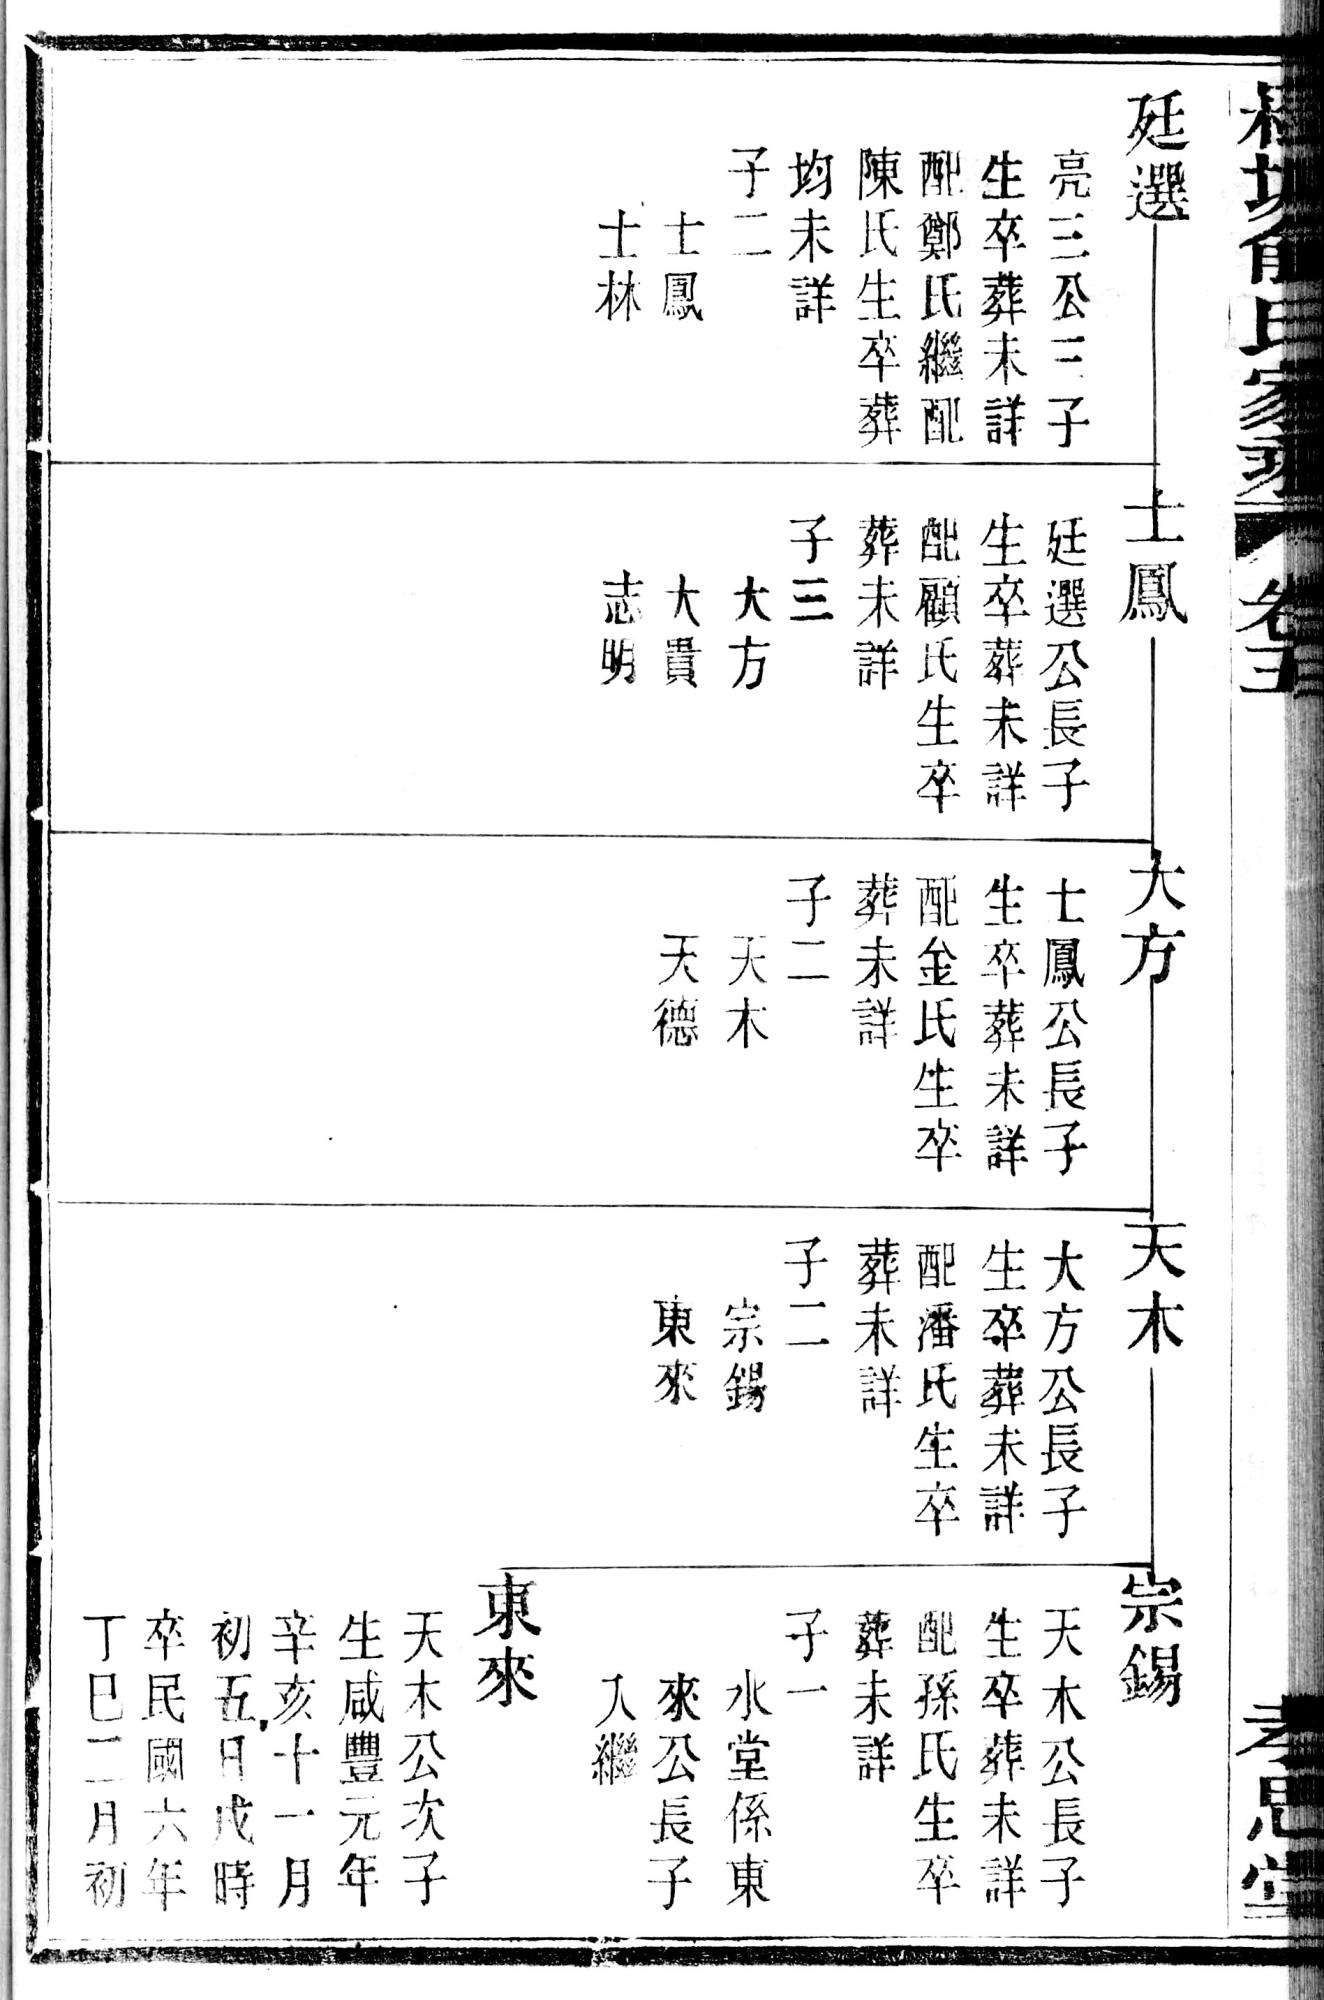 氏家
卷五
孝思堂
廷選
亮三公三子
生卒葬未詳
配鄭氏繼配
陳氏生卒葬
均未詳
子二
士鳳
士林
士鳳
廷選公長子
生卒葬未詳
配顧氏生卒
葬未詳
子三
大方
大貴
志明
大方
士鳳公長子
生卒葬未詳
配金氏生卒
葬未詳
子二
天木
天德
天木
大方公長子
生卒葬未詳
配潘氏生卒
葬未詳
子二
宗錫
東來
宗錫
天木公長子
生卒葬未詳
配孫氏生卒
葬未詳
子一
水堂係東
來公長子
入繼
東來
天木公次子
生咸豐元年
辛亥十一月
初五日戌時
卒民國六年
丁巳二月初